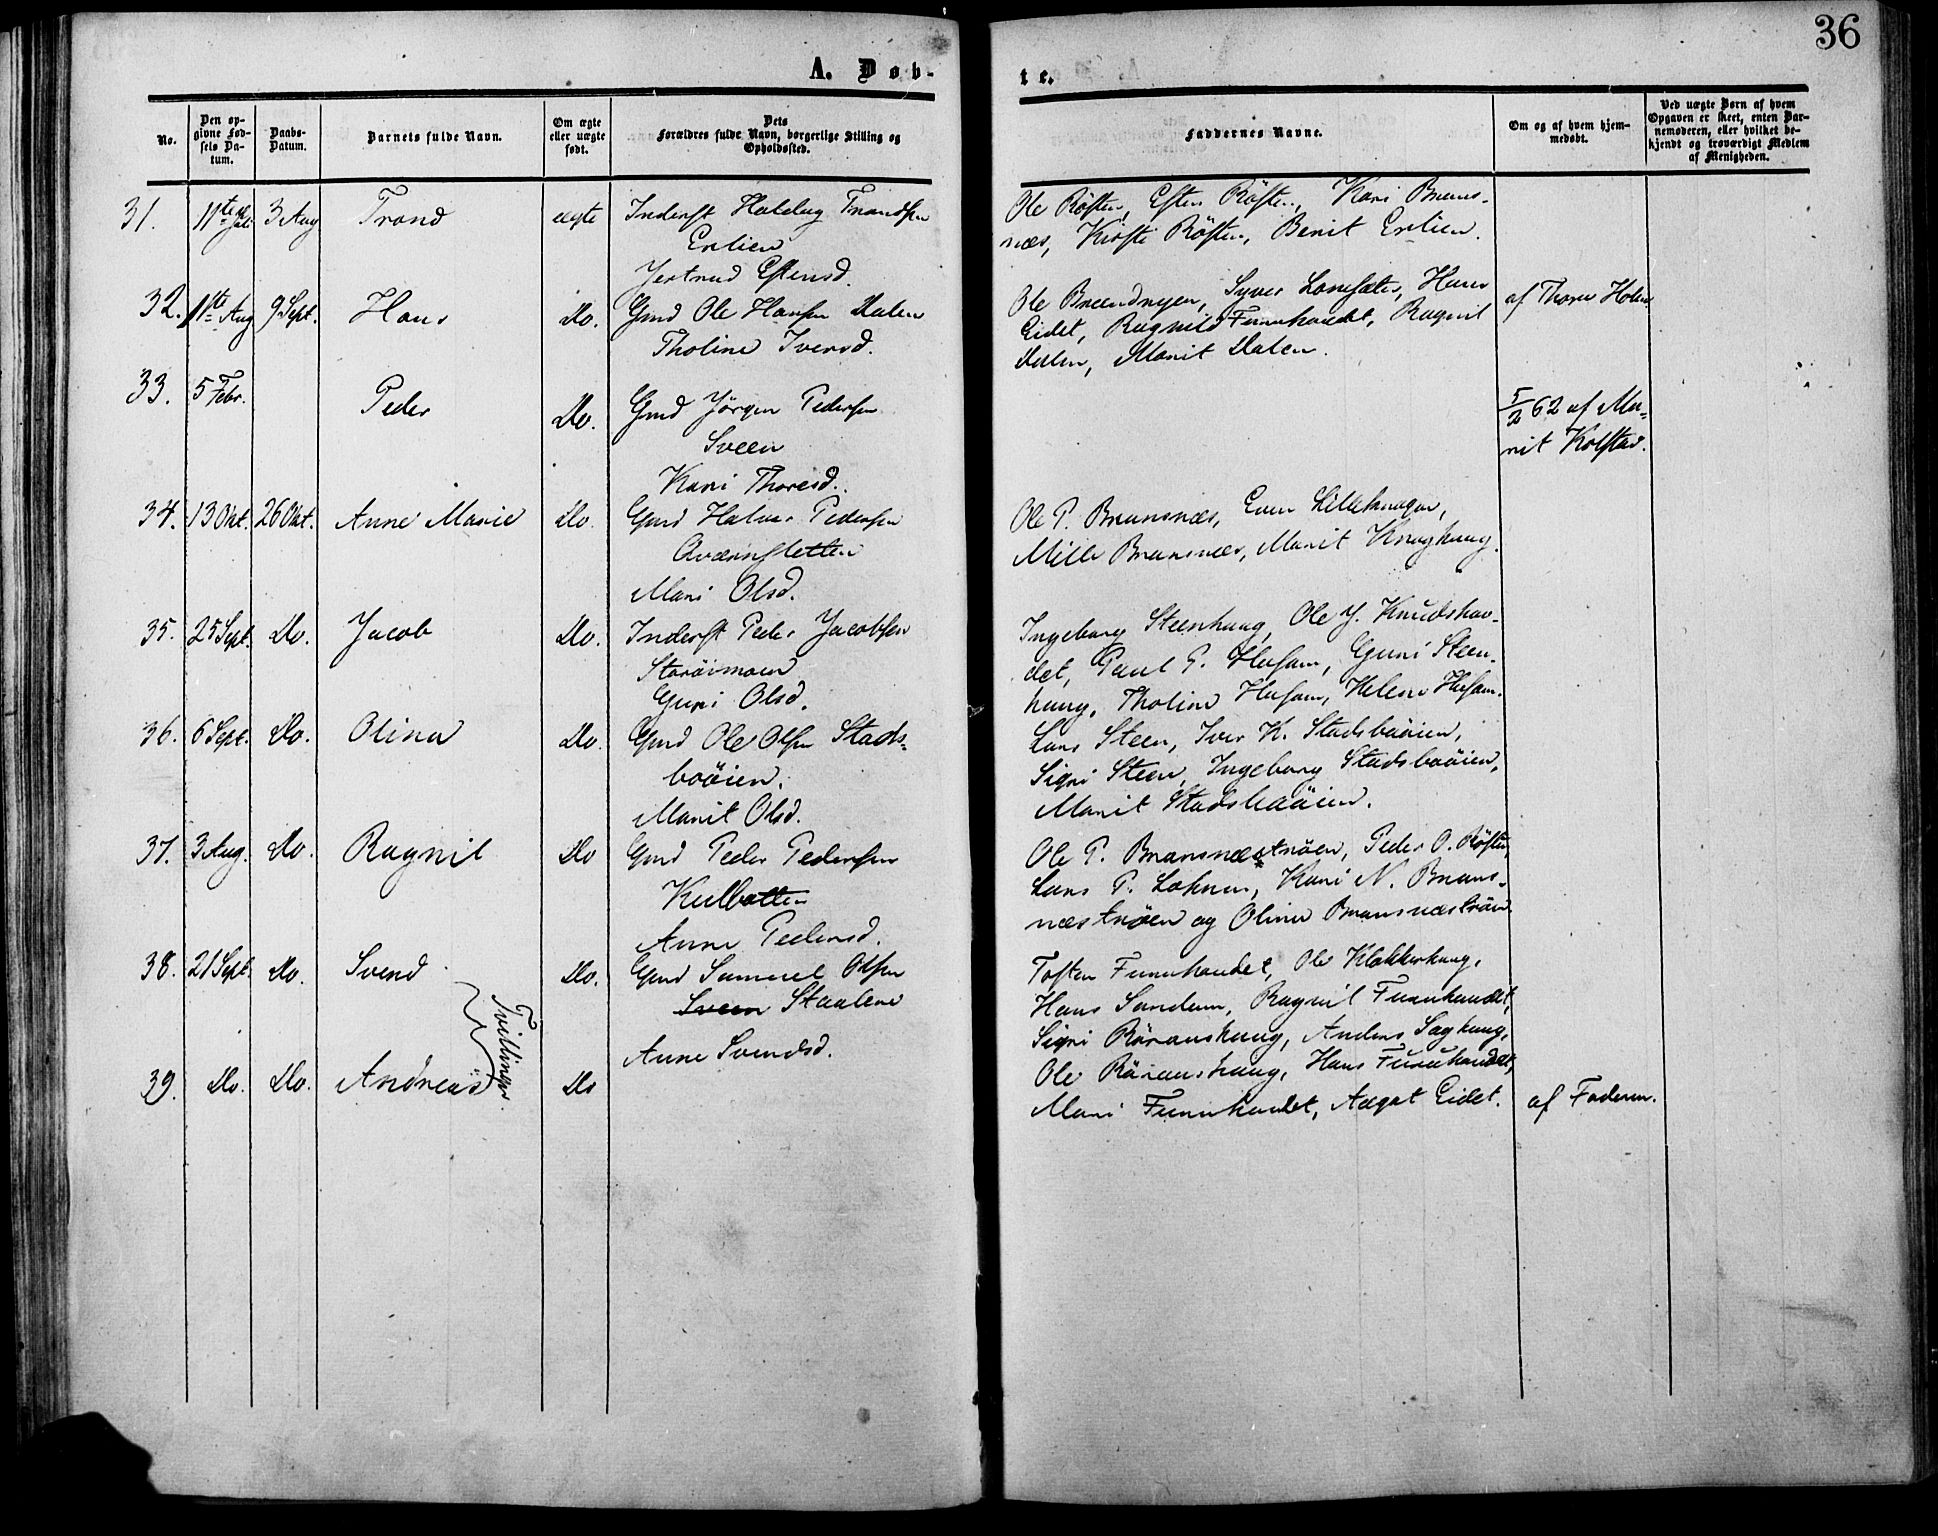 36
A. Døb-
te.
No.
Den op-
givne Fød-
sels Da-
tum.
Daabs-
Datum.
Barnets fulde Navn.
Om ægte
eller uægte
født.
Dets
Forældres fulde Navn, borgerlige Stilling og
Opholdssted.
Faddernes Navne.
Om og af hvem hjem-
medøbt.
Ved uægte Børn af hvem
Opgaven er skeet, enten Bar-
nemoderen, eller hvilket be-
kjendt og troværdigt Medlem
af Menigheden.
31. 11te Juli 3 Aug Trond ægte Inderst Haldog Trondsen
Enlien
Jertrud Estensd.
Ole Røsten, Esten Røsten, Kari Bruns-
næs, Kirsti Røsten, Berit Enlien.
32. 11te Aug 9 Sept. Hans Do. Gmd Ole Hansen Dalen
Tholine Iversd.
Ole Breendryen, Syver Lonsæter, Hans
Eidet, Ragnild Furuhaudet, Ragnil
Dalen, Marit Dalen.
af Thore Holen
33. 5 Febr. Peder Do. Gmd Jørgen Pedersen
Sveen
Kari Thoresd.
5/2 62 af Ma-
rit Kolstad.
34. 13 Okt. 26 Okt. Anne Marie Do. Gmd Halvor Pedersen
Qværnsletten
Mari Olsd.
Ole P. Brunsnæs, Even Lillekragen,
Mille Brunsnæs, Marit Kraghaug.
35. 25 Sept. Do. Jacob Do. Inderst Peder Jacobsen
Storøimoen
Guri Olsd.
Ingeborg Steenhaug, Ole J. Knudshav-
det, Paul P. Husom, Guri Steen-
haug, Tholine Husom, Helene Husom.
36. 6 Sept. Do. Olina Do. Gmd Ole Olsen Stads-
boøien.
Marit Olsd.
Lars Steen, Iver K. Stadsbuøien,
Sigri Steen, Ingeborg Stadsboøien,
Marit Stadsbuøien.
37. 3 Aug. Do. Ragnil Do Gmd Peder Pedersen
Kulbotten
Anne Pedersd.
Ole P. Bransnæstrøen, Peder O. Røsten,
Lars P. Loknes, Kari N. Bruns-
næstrøen og Oline Brunsnæstrøen
38. 21 Sept. Do. Svend Do. Gmd Samuel Olsen
Sveen Staalene
Anne Svendsd.
Tosten Furuhaudet, Ole Klokkerhaug,
Hans Sandum, Ragnil Furuhaudet,
Sigri Røranshaug, Anders Saghaug,
Tvillinger.
39. Do. Do. Andreas Do
Ole Røranshaug, Hans Furuhaudet,
Mari Furuhaudet, Aagot Eidet.
af Faderen.